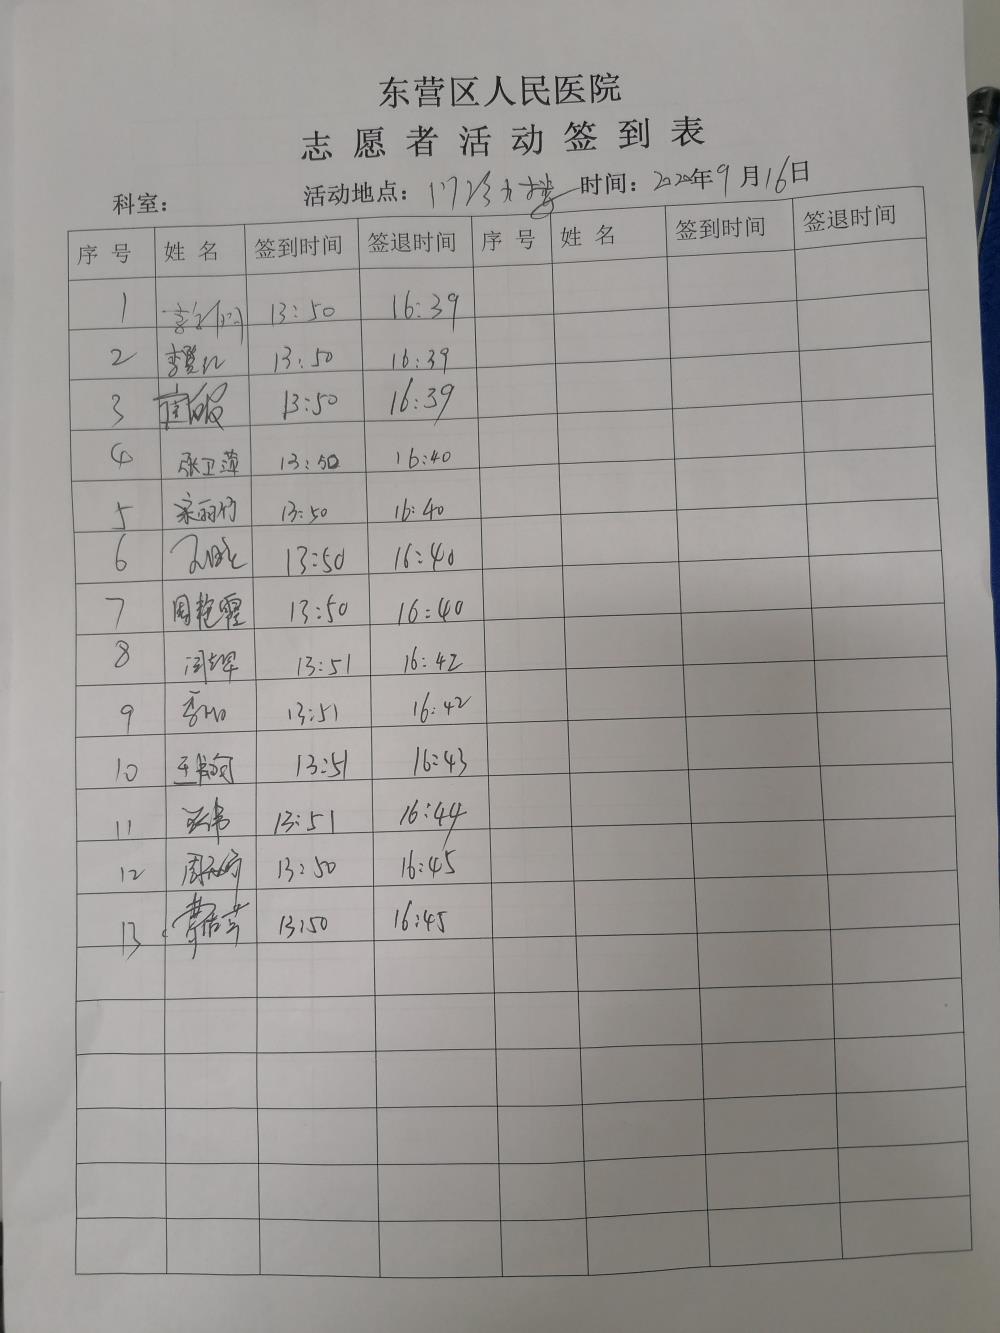 东营区人民医院
志愿者活动签到表
科室： 活动地点：门诊大楼 时间：2020年9月16日
序号 姓名 签到时间 签退时间 序号 姓名 签到时间 签退时间
1 13:50 16:39
2 13:50 16:39
3 13:50 16:39
4 张卫萍 13:50 16:40
5 宋丽竹 13:50 16:40
6 13:50 16:40
7 周艳霞 13:50 16:40
8 13:51 16:42
9 13:51 16:42
10 13:51 16:43
11 13:51 16:44
12 13:50 16:45
13 13:50 16:45